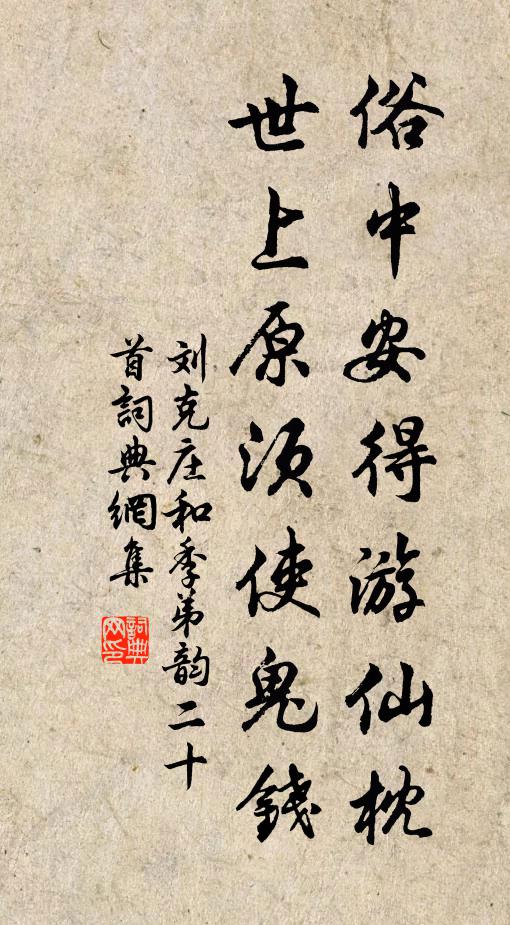 俗中安得游仙枕
世上原须使鬼錢
刘克庄和季弟韵二十
首詞典網集
詞典
网印